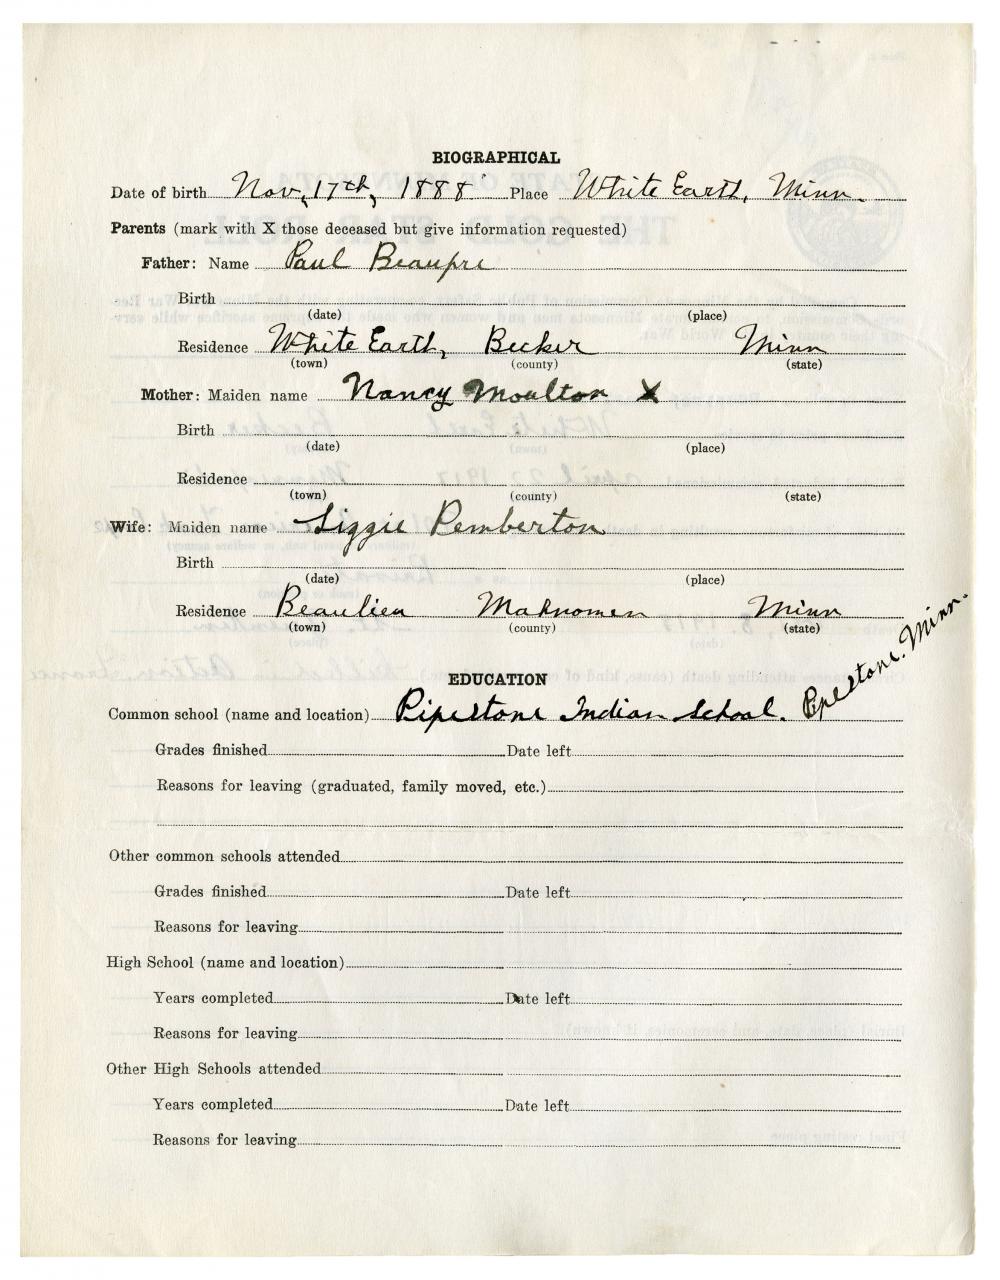 BIOGRAPHICAL
Date of birth Nov, 17th, 1888 Place White Earth, Minn.
Parents (mark with X those deceased but give information requested)
Father: Name Paul Beaupre
Birth
(date) (place)
Residence White Earth, Becker Minn
(town) (county) (state)
Mother: Maiden name Nancy Moulton X
Birth
(date) (place)
Residence
(town) (county) (state)
Wife: Maiden name Lizzie Pemberton
Birth
(date) (place)
Residence Beaulieu Mahnomen Minn
(town) (county) (state)
EDUCATION
Common school (name and location) Pipestone Indian School. Pipestone. Minn.
Grades finished Date left
Reasons for leaving (graduated, family moved, etc.)
Other common schools attended
Grades finished Date left
Reasons for leaving
High School (name and location)
Years completed Date left
Reasons for leaving
Other High Schools attended
Years completed Date left
Reasons for leaving